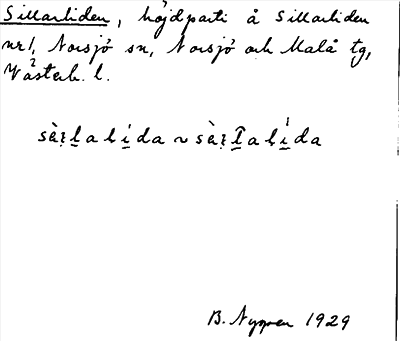 Sillarliden, höjdparti å Sillarliden
nr 1, Norsjö sn, Norsjö och Malå tg,
Västerb. l.
B. Nygren 1929